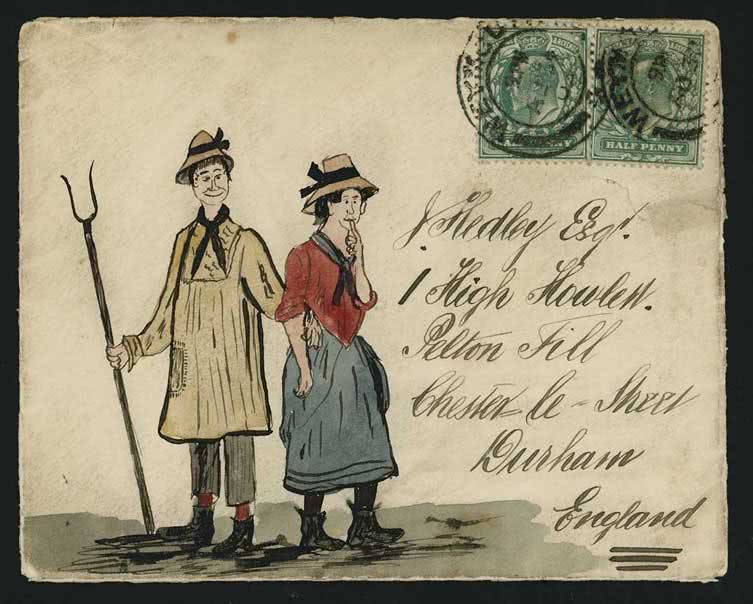 HALF PENNY HALF PENNY
J. Hedley Esqr.
1 High Howlett.
Pelton Fill
Chester-le-Street
Durham
England